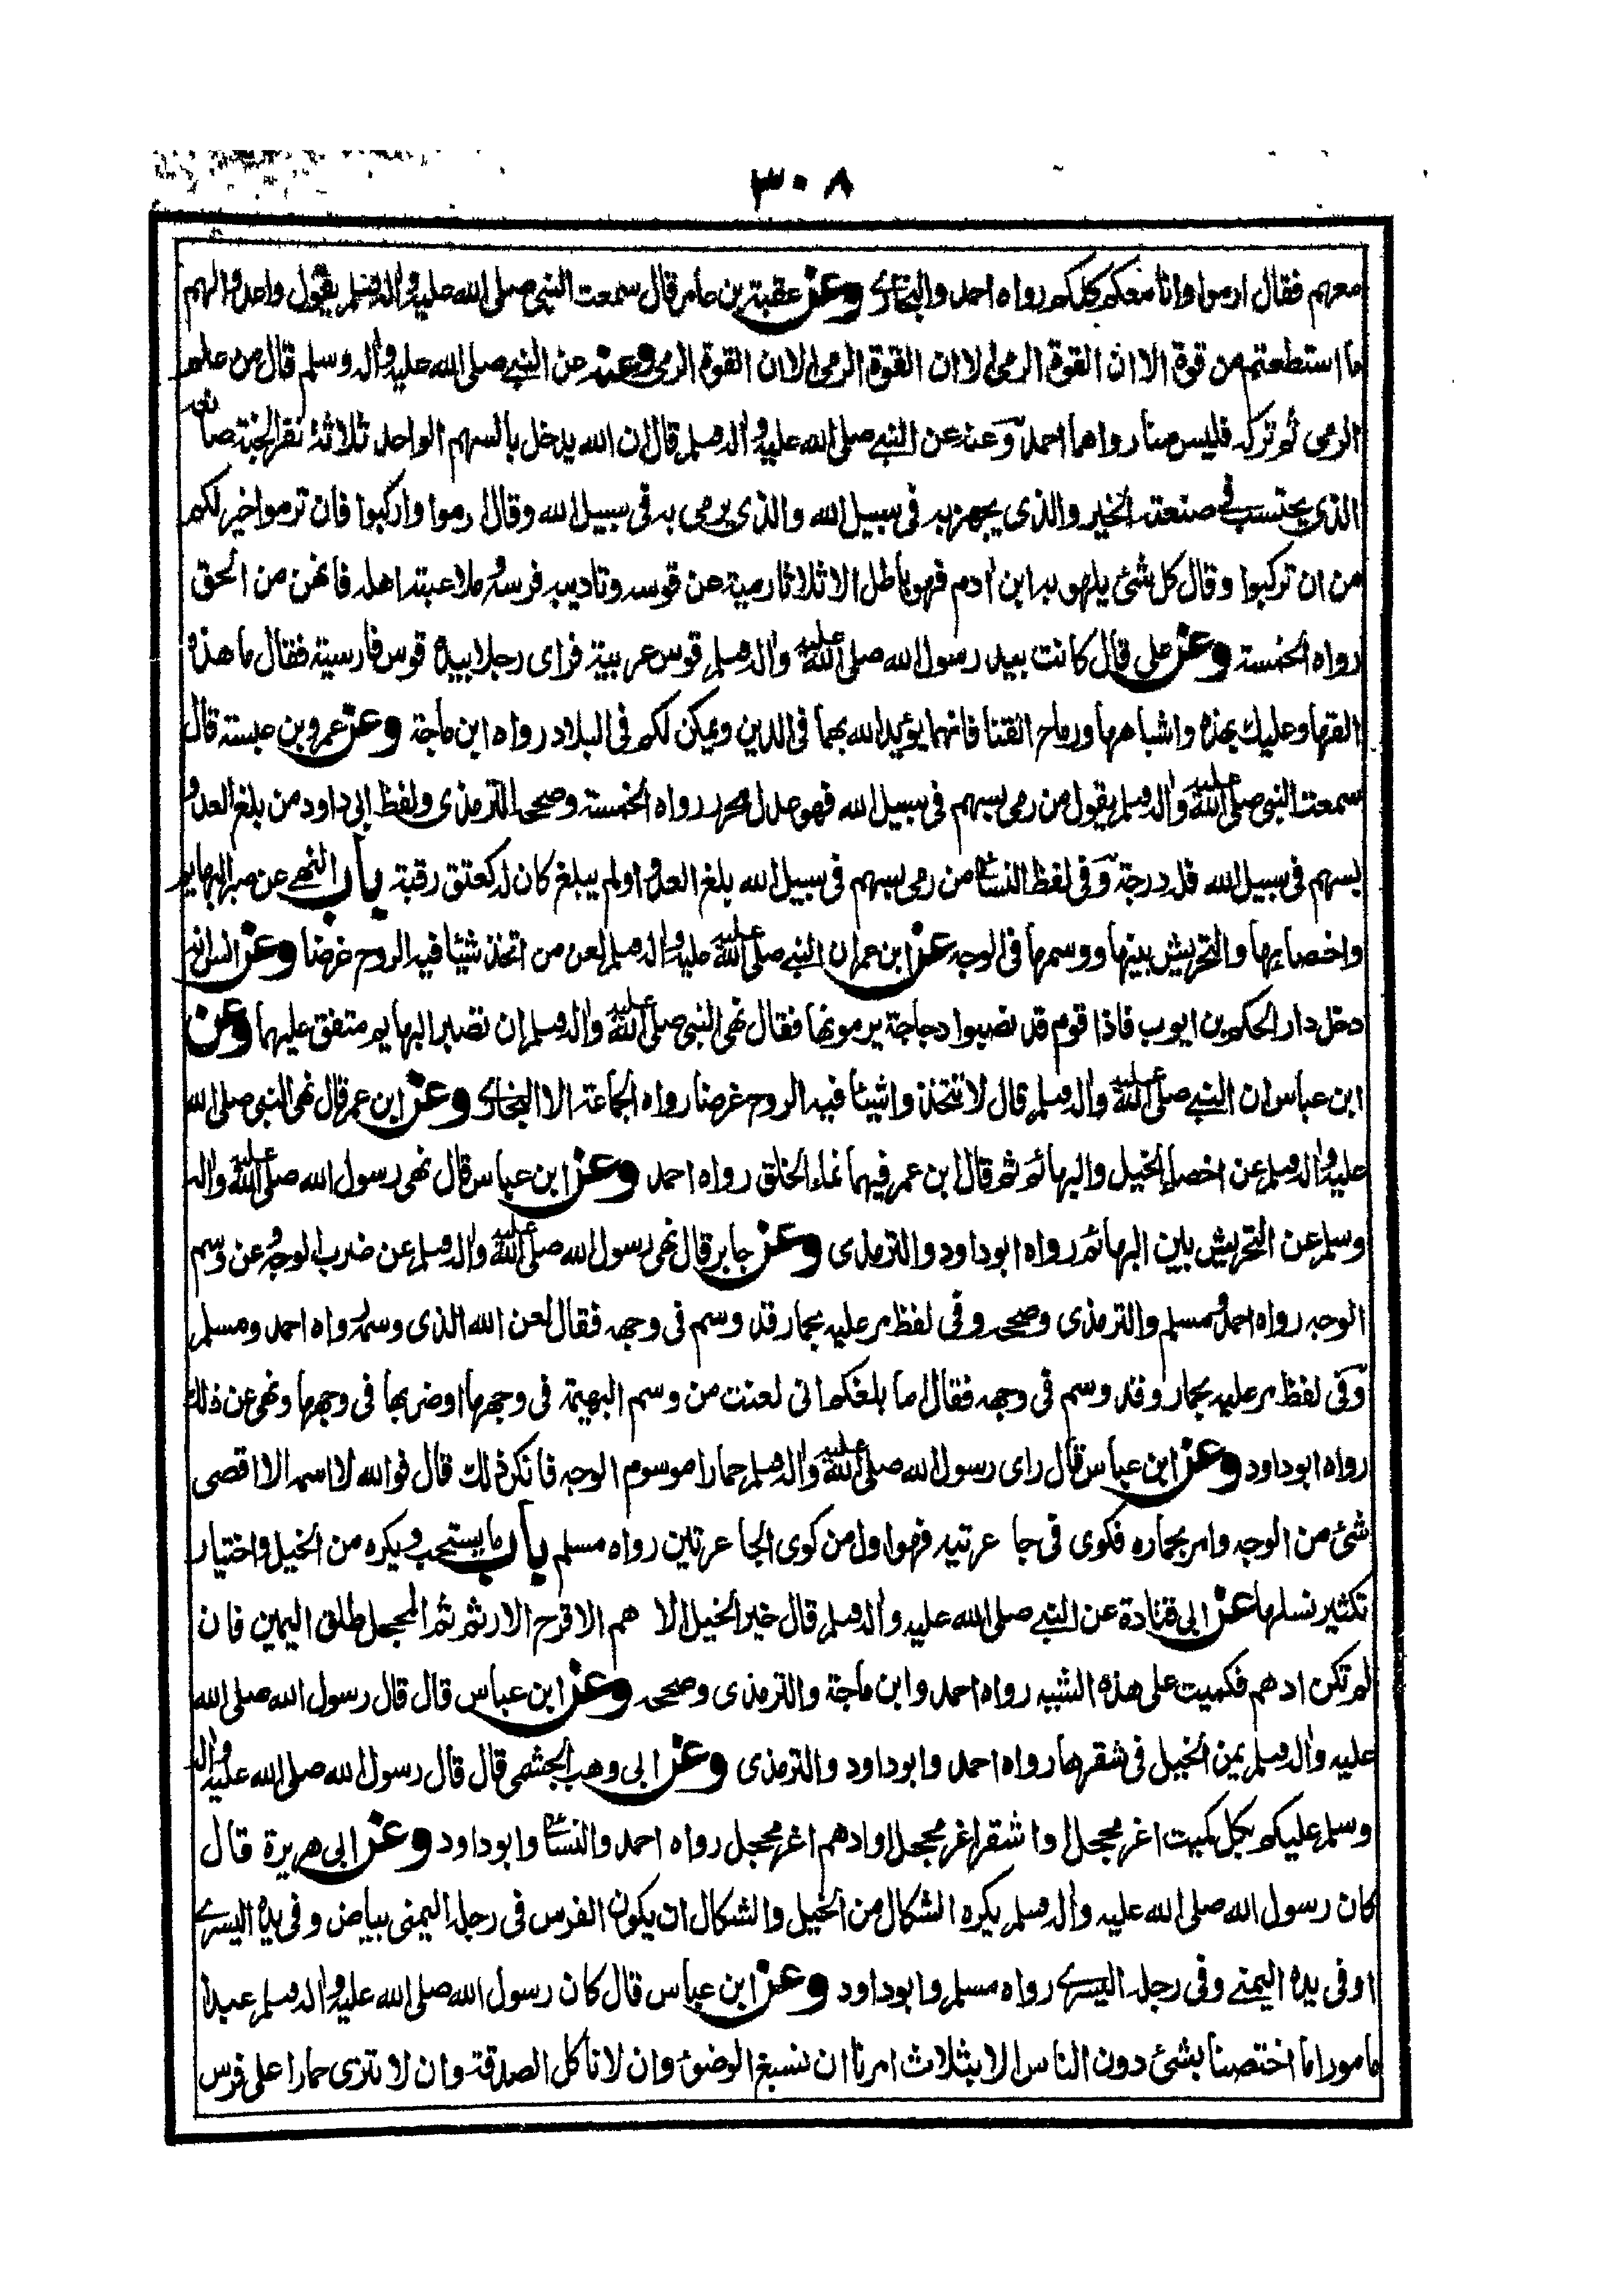 ٣٠٨
معهم فقال ارموا وانا معكم كلكم رواه احمد والبخاري وعن عقبة بن عامر قال سمعت النبي صلى الله عليه واله وسلم يقول واعدوا لهم
ما استطعتم من قوة الا ان القوة الرمى الا ان القوة الرمى الا ان القوة الرمى وعنه عن النبي صلى الله عليه واله وسلم قال من علم
الرمى ثم تركه فليس منا رواهما احمد وعنه عن النبي صلى الله عليه واله وسلم قال ان الله يدخل بالسهم الواحد ثلاثة نفر الجنة صانعه
الذى يحتسب في صنعته الخير والذى يجهز به فى سبيل الله والذى يرمى به فى سبيل الله وقال ارموا واركبوا فان ترموا خير لكم
من ان تركبوا وقال كل شئ يلهو به ابن ادم فهو باطل الا ثلاثا رمية عن قوسه وتاديبه فرسه وملاعبته اهله فانهن من الحق
رواه الخمسة وعن على قال كانت بيد رسول الله صلى الله عليه واله وسلم قوس عربية فراى رجلا بيده قوس فارسية فقال ما هذه
القها وعليك بهذه واشباهها ورماح القنا فانهما يؤيد الله بهما فى الدين ويمكن لكم فى البلاد رواه ابن ماجة وعن عمرو بن عبسة قال
سمعت النبي صلى الله عليه واله وسلم يقول من رمى بسهم فى سبيل الله فهو عدل محرر رواه الخمسة وصححه الترمذى ولفظ ابى داود من بلغ العدو
بسهم فى سبيل الله فله درجة وفى لفظ النسائي من رمى بسهم فى سبيل الله بلغ العدو اولم يبلغ كان له كعتق رقبة باب النهي عن صبر البهايم
واخصايها والتحريش بينها ووسمها فى الوجه عن ابن عمر ان النبي صلى الله عليه واله وسلم لعن من اتخذ شيئا فيه الروح غرضا وعن انس انه
دخل دار الحكم بن ايوب فاذا قوم قد نصبوا دجاجة يرمونها فقال نهى النبي صلى الله عليه واله وسلم ان تصبر البهايم متفق عليهما وعن
ابن عباس ان النبي صلى الله عليه واله وسلم قال لا تتخذوا شيئا فيه الروح غرضا رواه الجماعة الا البخاري وعن ابن عمر قال نهى النبي صلى الله
عليه واله وسلم عن اخصاء الخيل والبهائم ثم قال ابن عمر فيهما نماء الخلق رواه احمد وعن ابن عباس قال نهى رسول الله صلى الله عليه واله
وسلم عن التحريش بين البهائم رواه ابوداود والترمذى وعن جابر قال نهى رسول الله صلى الله عليه واله وسلم عن ضرب الوجه وعن وسم
الوجه رواه احمد ومسلم والترمذى وصححه وفى لفظ مر عليه بحمار قد وسم فى وجهه فقال لعن الله الذى وسمه رواه احمد ومسلم
وفى لفظ مر عليه بحمار وقد وسم فى وجهه فقال اما بلغكم انى لعنت من وسم البهيمة فى وجهها او ضربها فى وجهها ونهى عن ذلك
رواه ابوداود وعن ابن عباس قال راى رسول الله صلى الله عليه واله وسلم حمارا موسوم الوجه فانكر ذلك قال فوالله لا اسمه الا اقصى
شئ من الوجه وامر بحماره فكوى فى جاعرتيه فهو اول من كوى الجاعرتين رواه مسلم باب ما يستحب ويكره من الخيل واختيار
تكثير نسلها عن ابى قتادة عن النبي صلى الله عليه واله وسلم قال خير الخيل الادهم الاقرح الارثم ثم المحجل طلق اليمين فان
لم تكن ادهم فكميت على هذه الشبه رواه احمد وابن ماجة والترمذى وصححه وعن ابن عباس قال قال رسول الله صلى الله
عليه واله وسلم يمن الخيل فى شقرها رواه احمد وابوداود والترمذى وعن ابى وهب الجشمى قال قال رسول الله صلى الله عليه واله
وسلم عليكم بكل كميت اغر محجل او اشقر اغر محجل او ادهم اغر محجل رواه احمد والنسائي وابوداود وعن ابى هريرة قال
كان رسول الله صلى الله عليه واله وسلم يكره الشكال من الخيل والشكال ان يكون الفرس فى رجله اليمنى بياض وفى يده اليسرى
او فى يده اليمنى وفى رجله اليسرى رواه مسلم وابوداود وعن ابن عباس قال كان رسول الله صلى الله عليه واله وسلم عبدا
مامورا ما اختصنا بشئ دون الناس الا بثلاث امرنا ان نسبغ الوضوء وان لا ناكل الصدقة وان لا ننزى حمارا على فرس